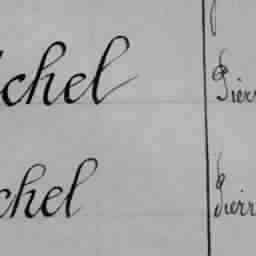 chel
Pierr
chel
Pierr